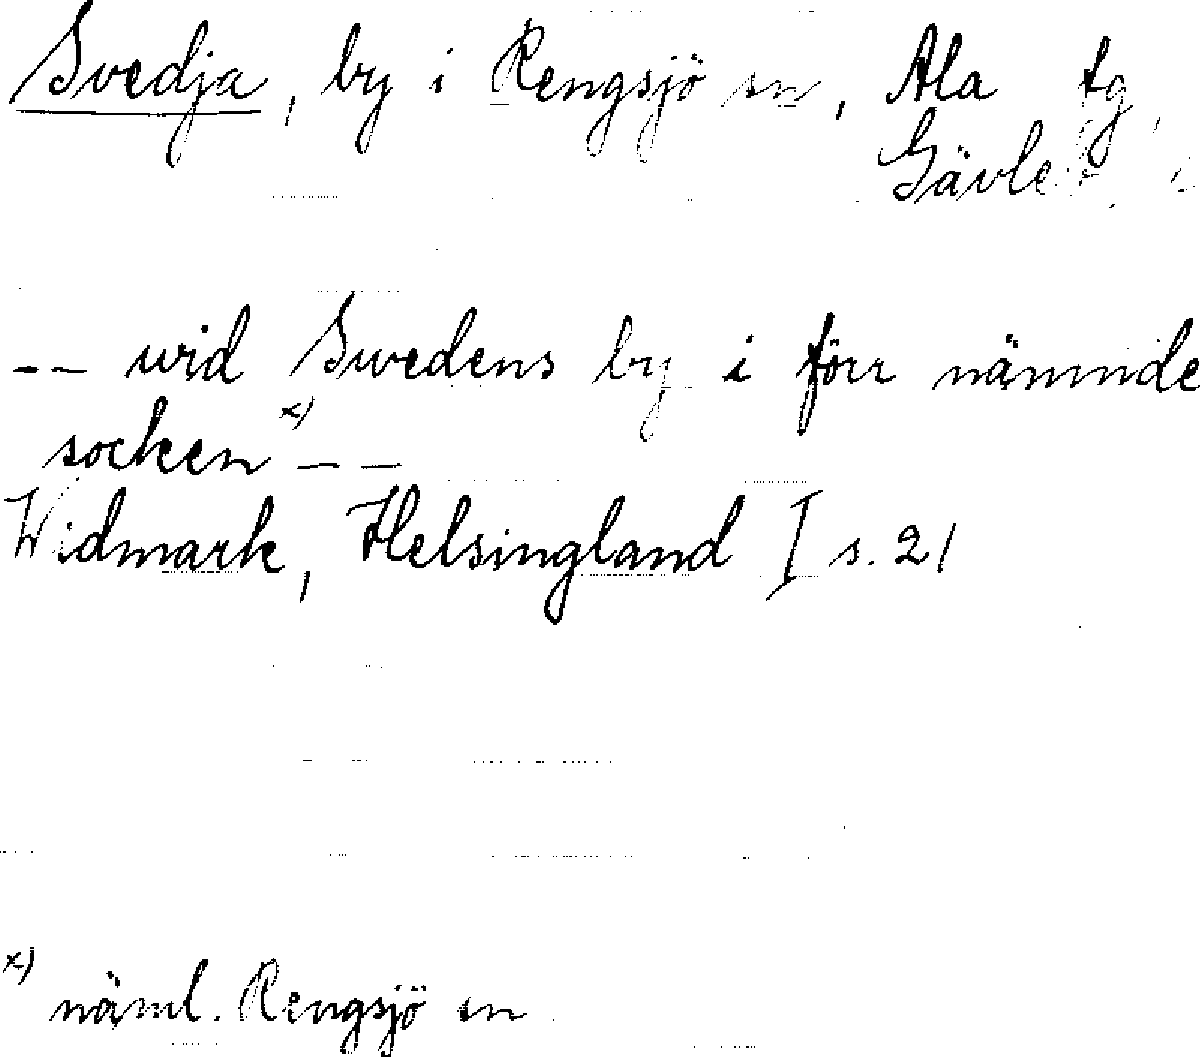 Svedja, by i Rengsjö sn, Ala tg,
Gävleb. l.
-- wid Swedens by i förr nämnde
socken x) --
Widmark, Helsingland I s. 21
x) näml. Rengsjö sn